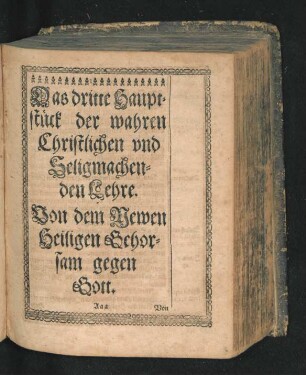 Das dritte Haupt-
stück der wahren
Christlichen vnd
Seligmachen-
den Lehre.
Von dem Newen
Heiligen Gehor-
sam gegen
Gott.
Von